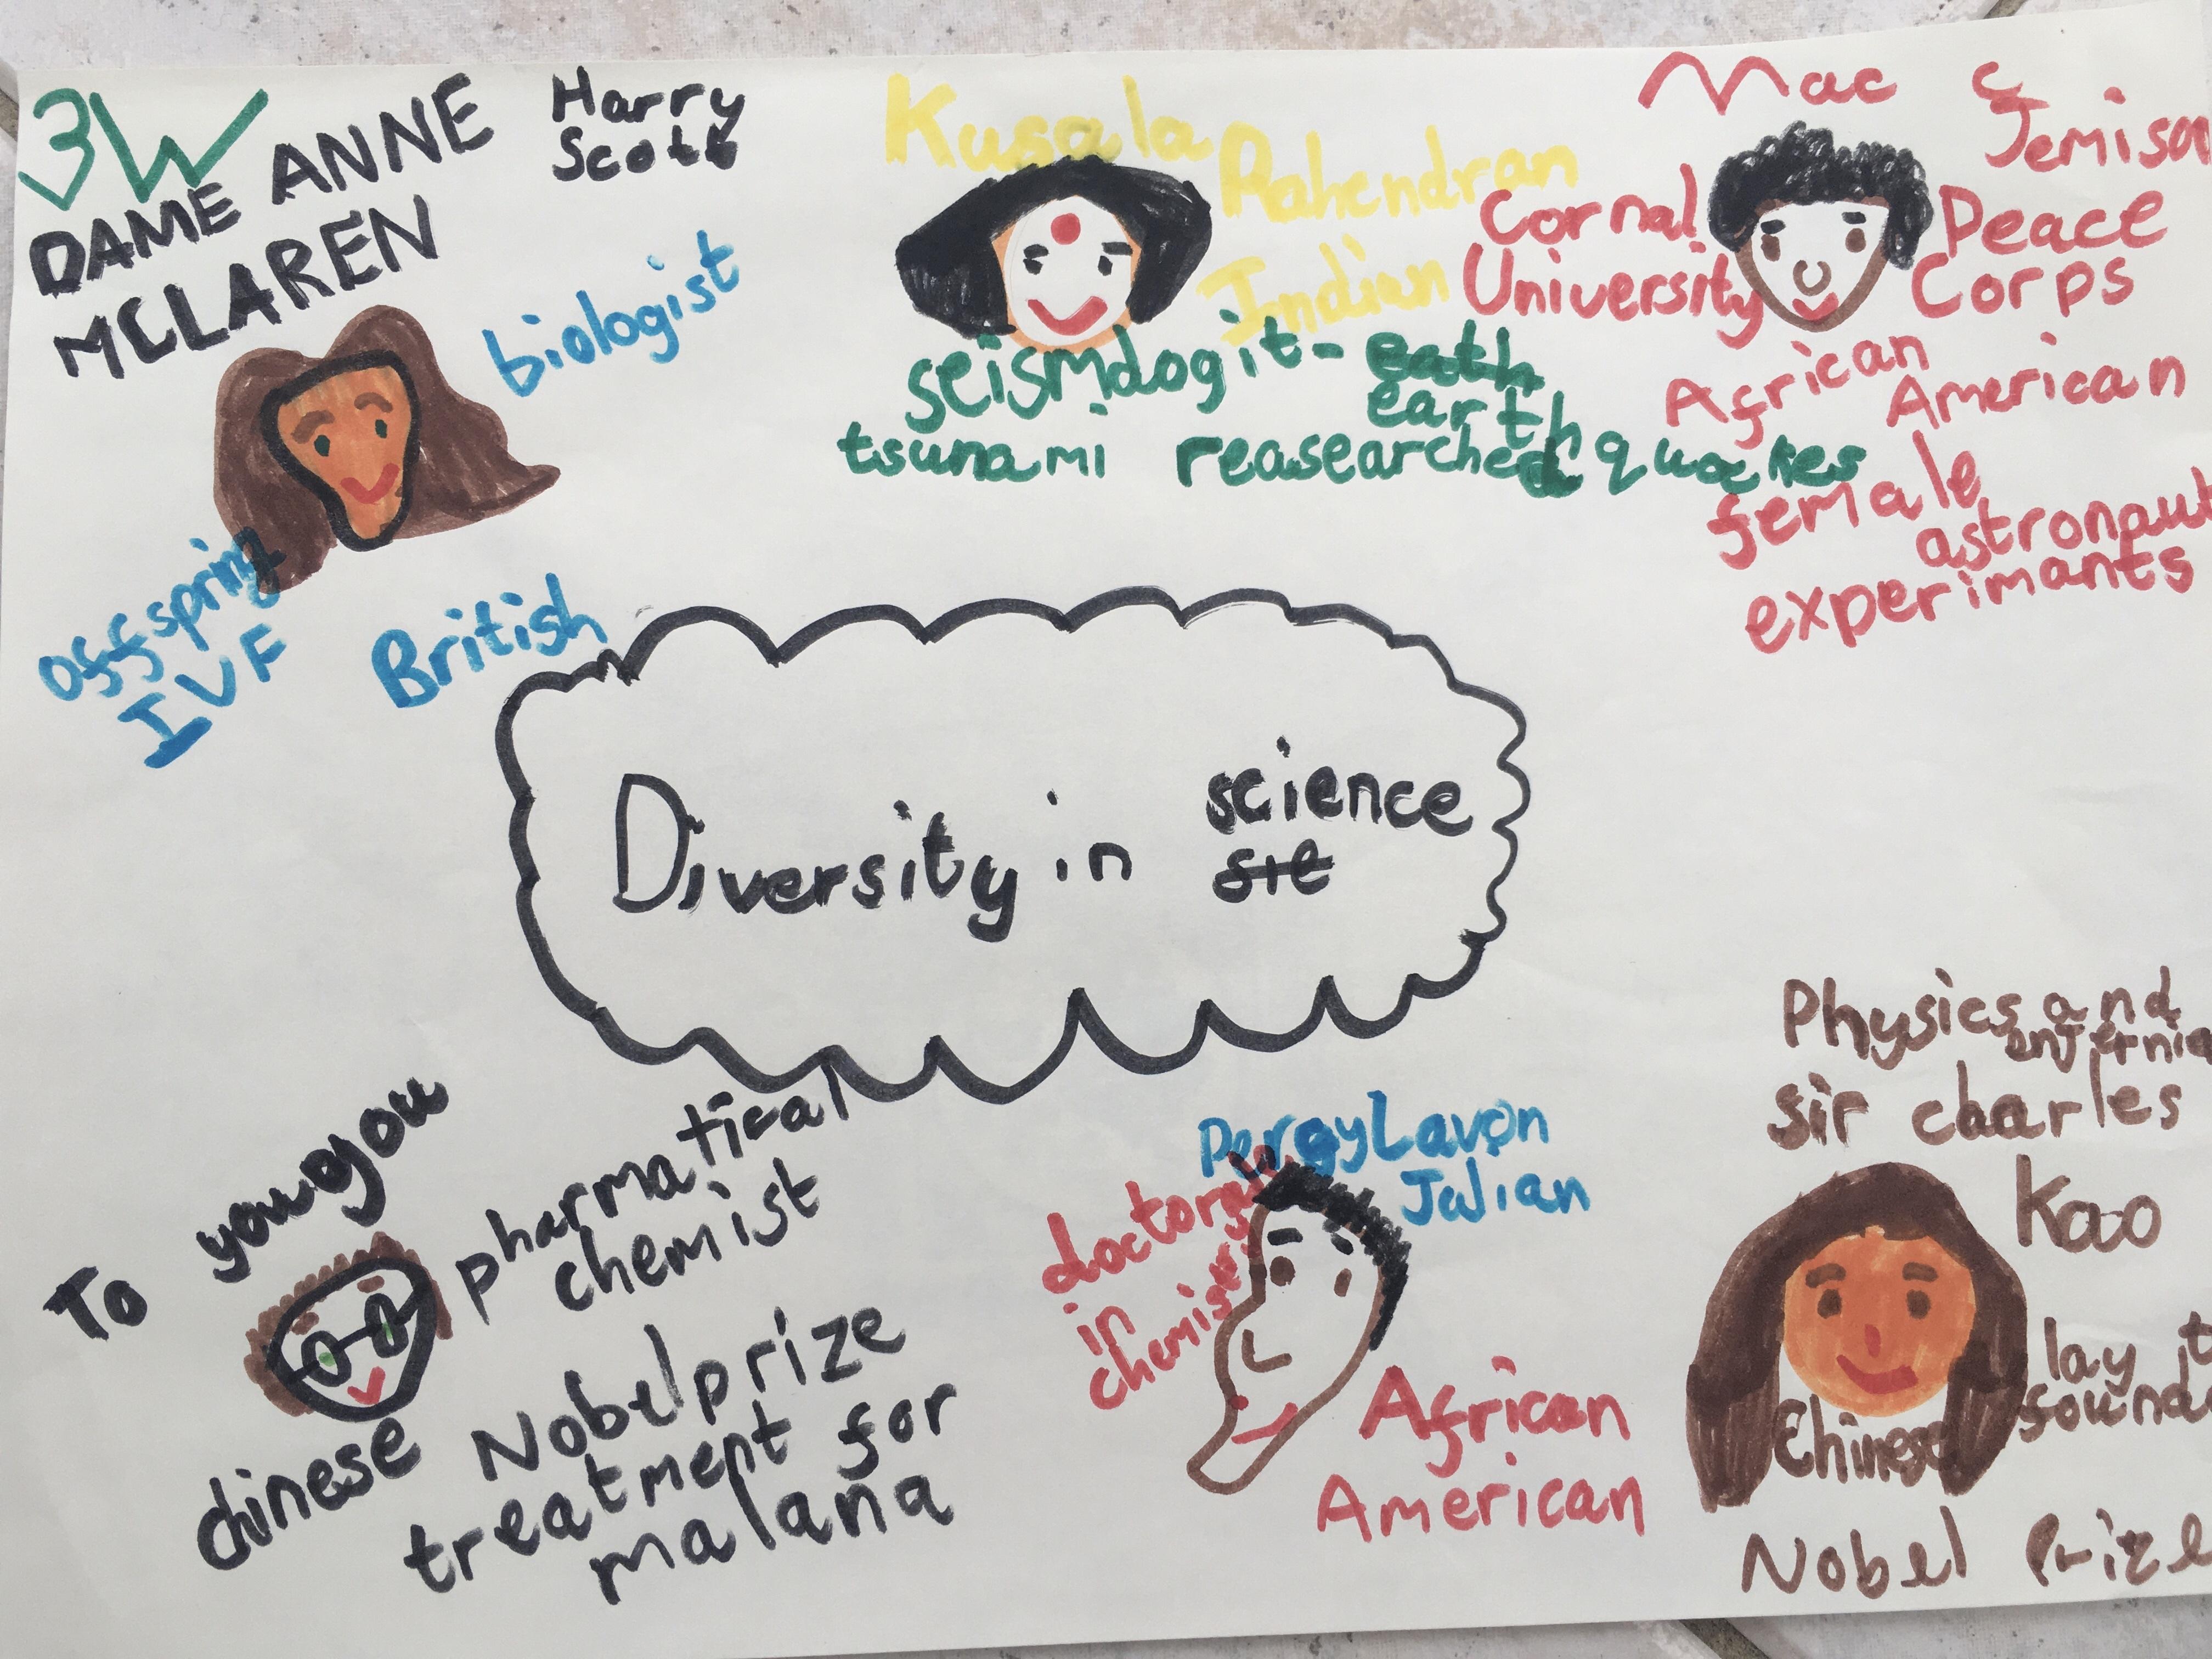 3W
DAME ANNE
MCLAREN
Harry
Scott
biologist
offspring
IVF
British
Kusala
Rahendran
Indian
seismologit- eath
earth
tsunami reasearched quackes
Mac C
Jemison
Cornal
University
Peace
Corps
African
American
female
astronaut
experimants
Diversity in science
sie
To youyou
pharmatical
chemist
chinese
Nobel prize
treatment for
malana
Lavon
Julian
doctorate
in
chemisery
African
American
Physics and
sir charles
Kao
lay
sound
Chinese
Nobel Prize